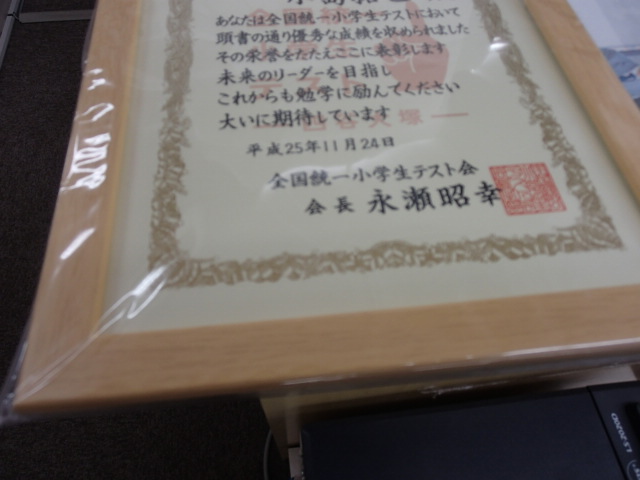 あなたは全国統一小学生テストにおいて
頭書の通り優秀な成績を収められました
その栄誉をたたえここに表彰します
未来のリーダーを目指し
これからも勉学に励んでください
大いに期待しています
平成25年11月24日
全国統一小学生テスト会
会長 永瀬昭幸